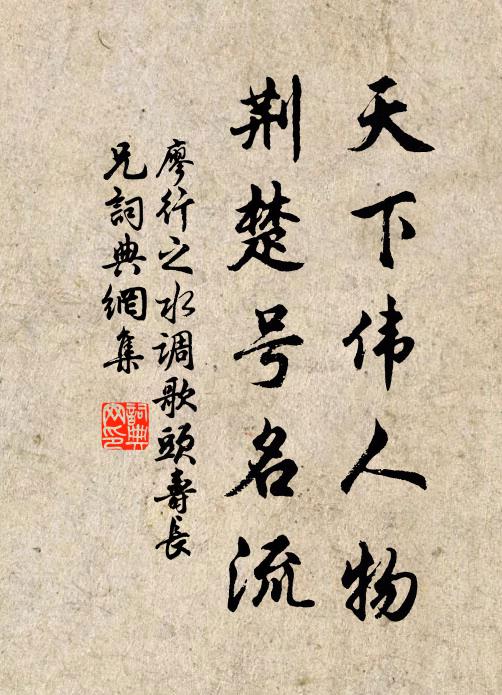 天下伟人物
荆楚号名流
廖行之水调歌頭壽長
兄詞典網集
詞典
网印